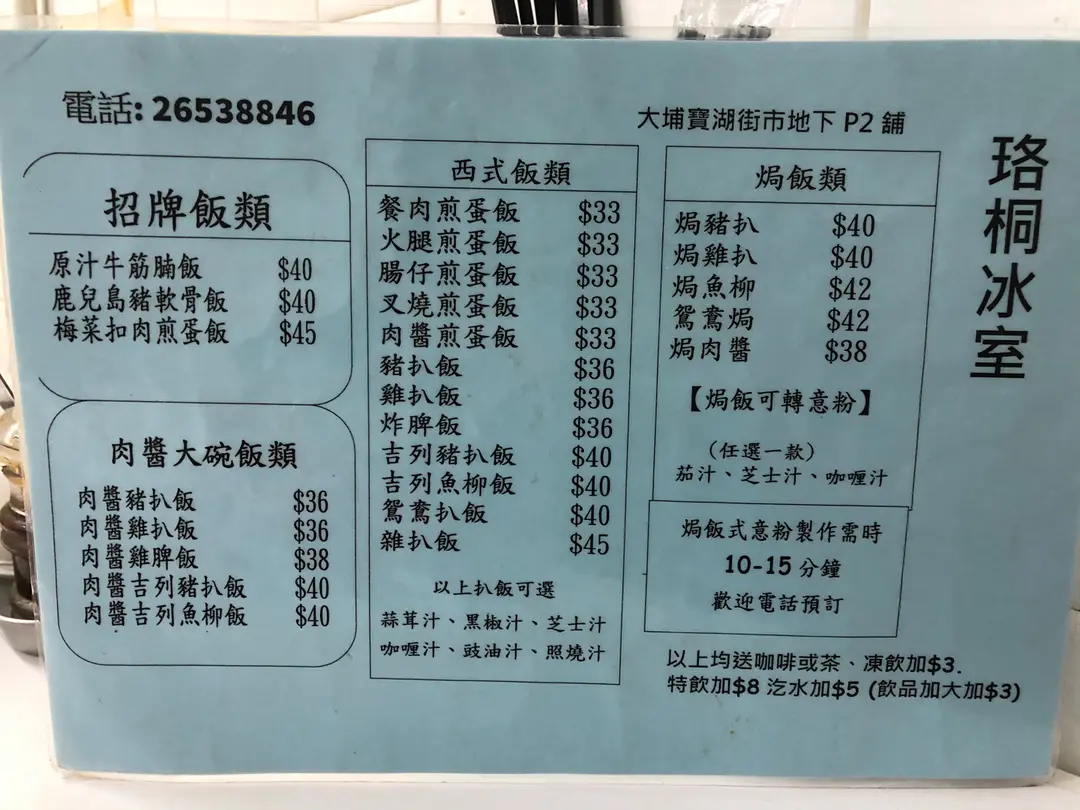 電話: 26538846
大埔寶湖街市地下 P2 舖
珞桐冰室
招牌飯類
原汁牛筋腩飯 $40
鹿兒島豬軟骨飯 $40
梅菜扣肉煎蛋飯 $45
肉醬大碗飯類
肉醬豬扒飯 $36
肉醬雞扒飯 $36
肉醬雞脾飯 $38
肉醬吉列豬扒飯 $40
肉醬吉列魚柳飯 $40
西式飯類
餐肉煎蛋飯 $33
火腿煎蛋飯 $33
腸仔煎蛋飯 $33
叉燒煎蛋飯 $33
肉醬煎蛋飯 $33
豬扒飯 $36
雞扒飯 $36
炸脾飯 $36
吉列豬扒飯 $40
吉列魚柳飯 $40
鴛鴦扒飯 $40
雜扒飯 $45
以上扒飯可選
蒜茸汁、黑椒汁、芝士汁
咖喱汁、豉油汁、照燒汁
焗飯類
焗豬扒 $40
焗雞扒 $40
焗魚柳 $42
鴛鴦焗 $42
焗肉醬 $38
【焗飯可轉意粉】
（任選一款）
茄汁、芝士汁、咖喱汁
焗飯式意粉製作需時
10-15 分鐘
歡迎電話預訂
以上均送咖啡或茶、凍飲加$3.
特飲加$8 汔水加$5 (飲品加大加$3)